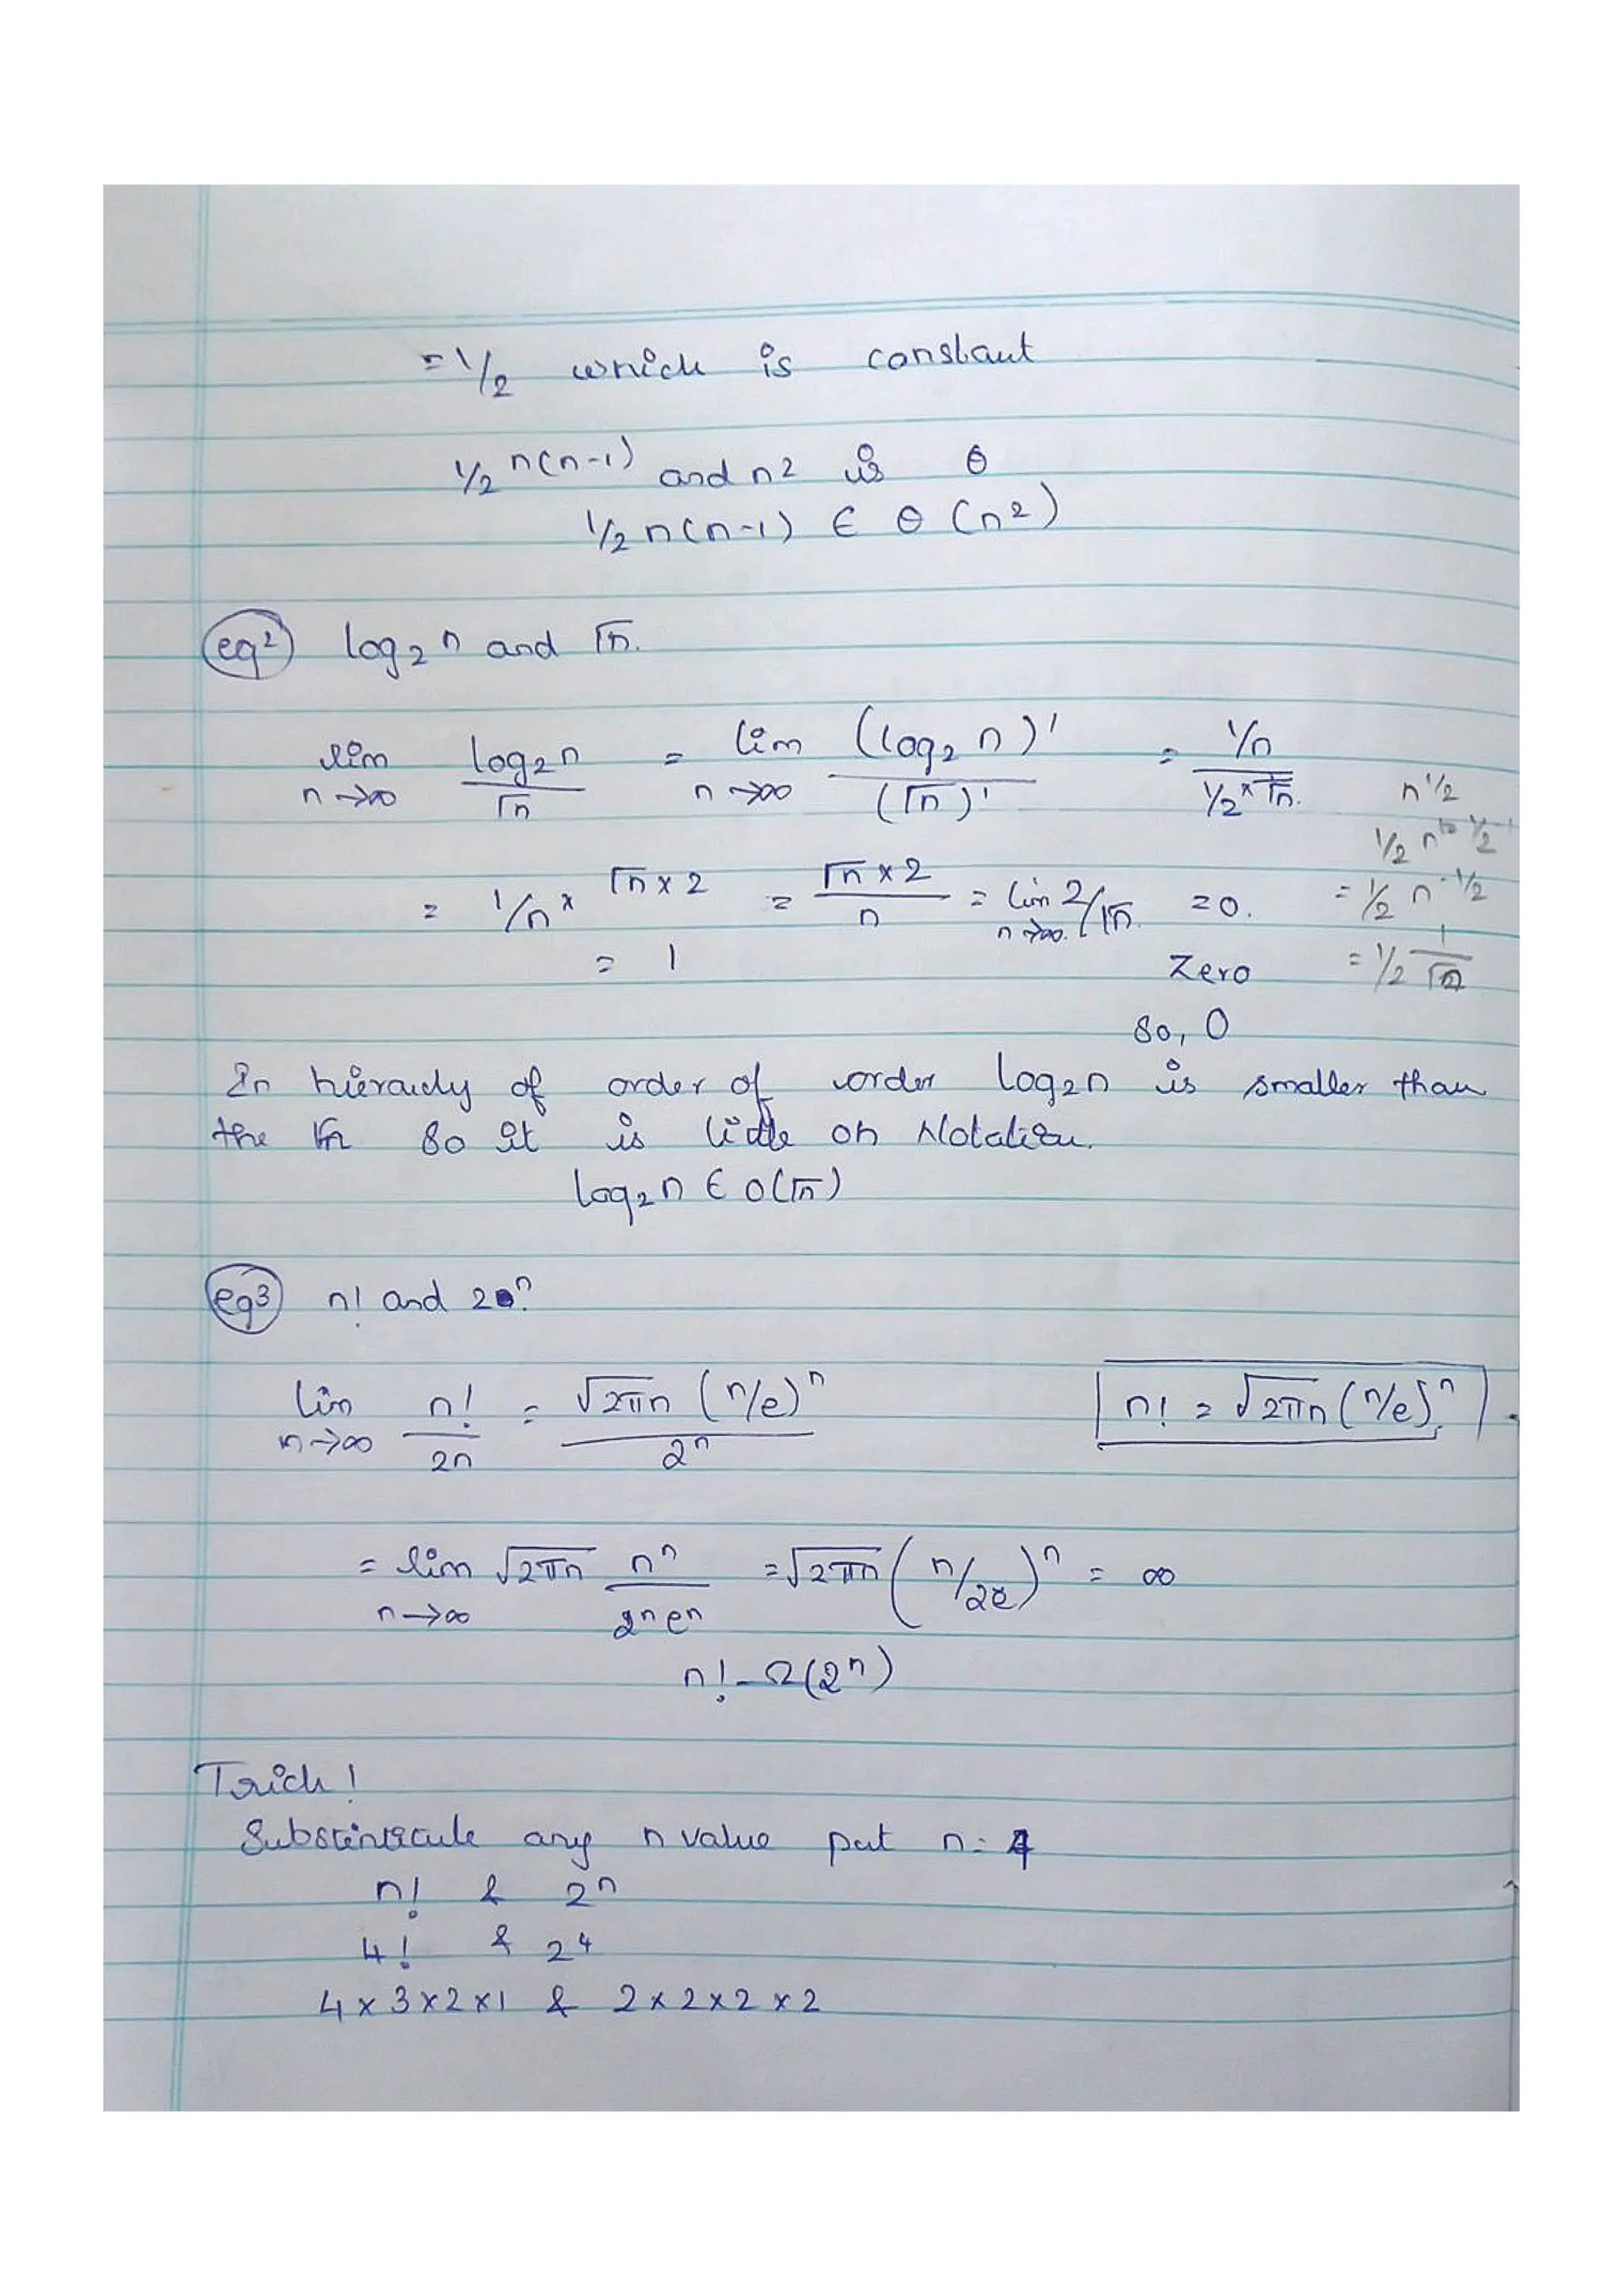 = 1/2 which is constant
1/2 n(n-1) and n2 is θ
1/2 n(n-1) ∈ θ (n²)
eg2 log₂n and √n.
lim n→∞ log₂n / √n = lim n→∞ (log₂n)' / (√n)' = 1/n / 1/2 × 1/√n.
n^1/2
1/2 n^1/2 - 1
= 1/n × √n × 2 = √n × 2 / n = lim n→∞. 2/√n. = 0.
= 1/2 n^-1/2
= 1
Zero
= 1/2 1/√n
So, O
In hierarchy of order of order log₂n is smaller than
the √n so it is little oh Notation.
log₂n ∈ o(√n)
eg3 n! and 2ⁿ?
lim n→∞ n! / 2n = √2πn (n/e)ⁿ / 2ⁿ
n! = √2πn (n/e)ⁿ.
= lim n→∞ √2πn nⁿ / 2ⁿeⁿ = √2πn (n/2e)ⁿ = ∞
n! - Ω(2ⁿ)
Trick!
any n value put n = 4
n! & 2ⁿ
4! & 2⁴
4 x 3 x 2 x 1 & 2 x 2 x 2 x 2